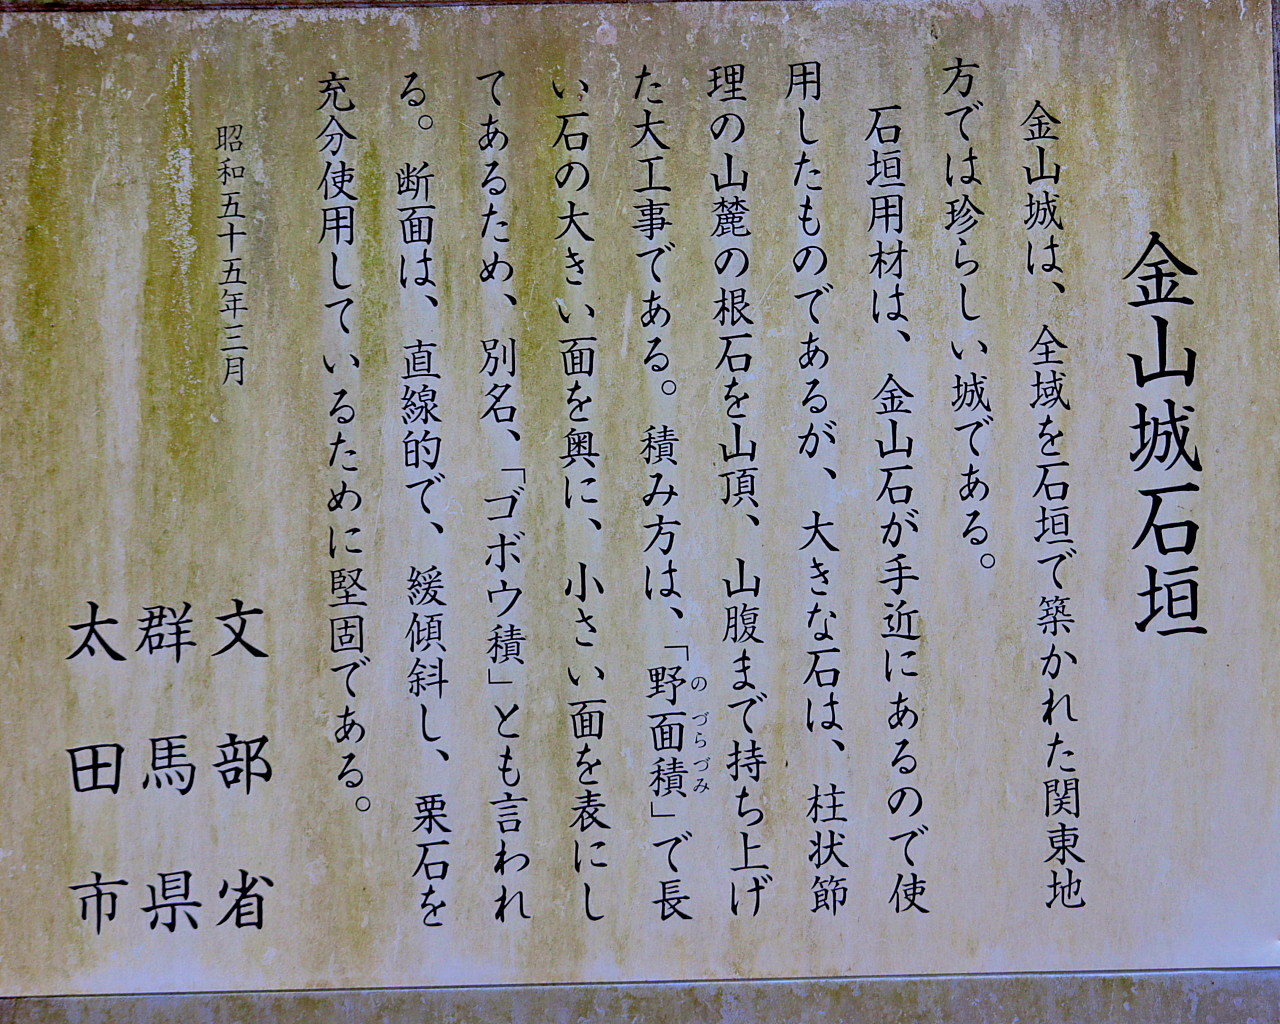 金山城石垣
金山城は、全域を石垣で築かれた関東地
方では珍らしい城である。
石垣用材は、金山石が手近にあるので使
用したものであるが、大きな石は、柱状節
理の山麓の根石を山頂、山腹まで持ち上げ
た大工事である。積み方は、「野面積」で長
のづらづみ
い石の大きい面を奥に、小さい面を表にし
てあるため、別名、「ゴボウ積」とも言われ
る。断面は、直線的で、緩傾斜し、栗石を
充分使用しているために堅固である。
昭和五十五年三月
文部省
群馬県
太田市